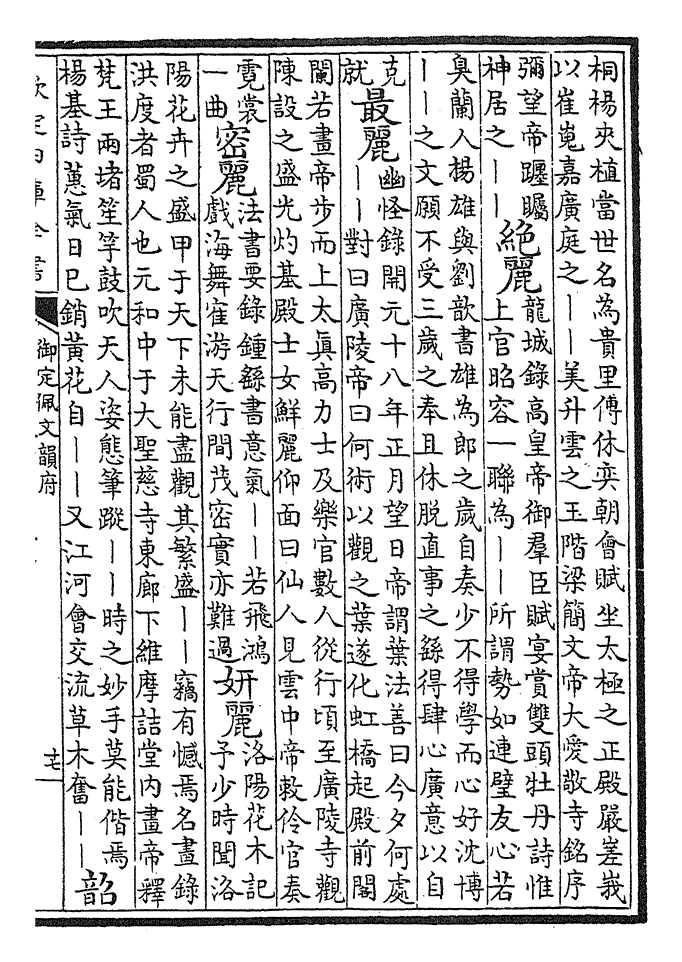 桐楊夾植當世名為貴里傅休奕朝會賦坐太極之正殿嚴嵳峩
以崔嵬嘉廣庭之——美升雲之玉階梁簡文帝大愛敬寺銘序
彌望帝躔矚
神居之——
絶麗
龍城錄高皇帝御羣臣賦宴賞雙頭牡丹詩惟
上官昭容一聯為——所謂勢如連璧友心若
臭蘭人揚雄與劉歆書雄為郎之歲自奏少不得學而心好沈博
——之文願不受三歲之奉且休脱直事之繇得肆心廣意以自
克
就
最麗
幽怪錄開元十八年正月望日帝謂葉法善曰今夕何處
——對曰廣陵帝曰何術以觀之葉遂化虹橋起殿前閣
闌若畫帝步而上太真高力士及樂官數人從行頃至廣陵寺觀
陳設之盛光灼基殿士女鮮麗仰面曰仙人見雲中帝敕伶官奏
霓裳
一曲
密麗
法書要錄鍾繇書意氣——若飛鴻
戲海舞寉游天行間茂密實亦難過
妍麗
洛陽花木記
予少時聞洛
陽花卉之盛甲于天下未能盡觀其繁盛——竊有憾焉名畫錄
洪度者蜀人也元和中于大聖慈寺東廊下維摩詰堂内畫帝釋
梵王兩堵笙竽鼓吹天人姿態筆蹤——時之妙手莫能偕焉
楊基詩蕙氣日已銷黄花自——又江河會交流草木奮——
韶
欽定四庫全書
御定佩文韻府